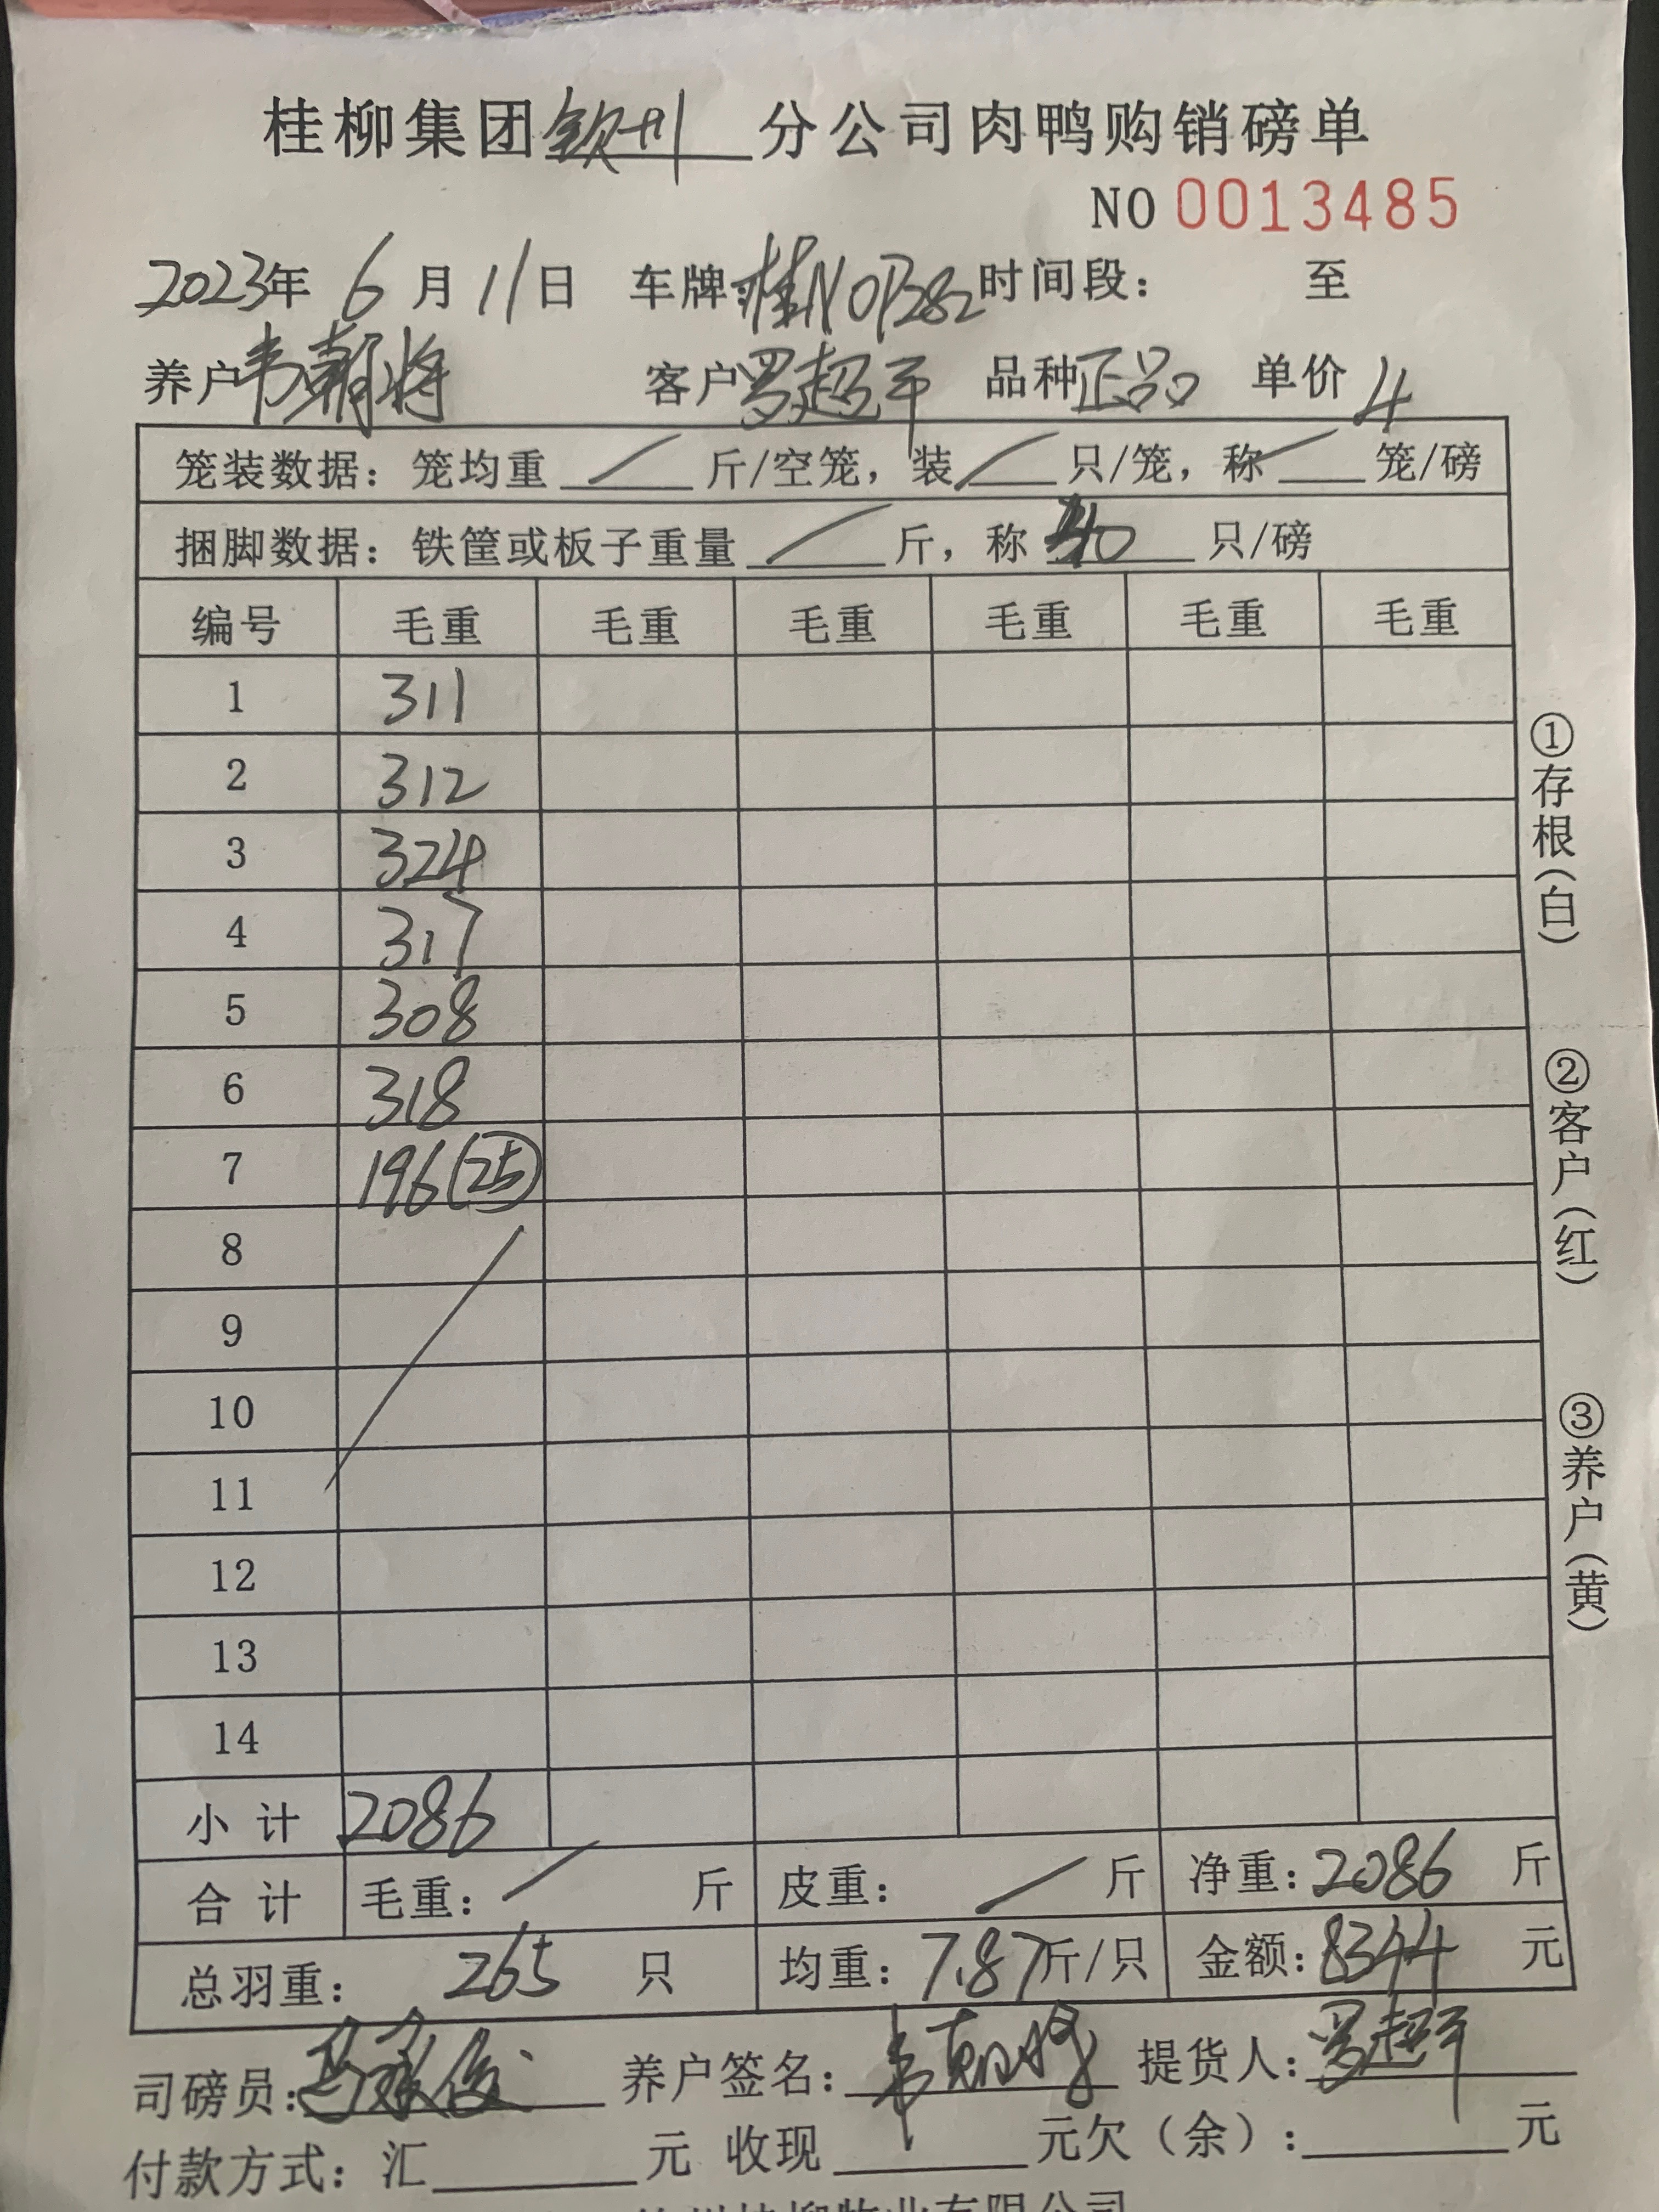 桂柳集团钦州分公司肉鸭购销磅单
NO 0013485
2023年 6月 11日 车牌:桂N0P282 时间段: 至
养户韦朝将 客户罗超平 品种正品 单价4
笼装数据:笼均重 / 斤/空笼,装 / 只/笼,称 / 笼/磅
捆脚数据:铁筐或板子重量 / 斤,称 40 只/磅
编号 毛重 毛重 毛重 毛重 毛重 毛重
1 311
2 312
3 324
4 317
5 308
6 318
7 196(25)
8
9
10
11
12
13
14
小计 2086
合计 毛重: / 斤 皮重: / 斤 净重:2086 斤
总羽重: 265 只 均重:7.87斤/只 金额:8344 元
司磅员: 养户签名:韦朝将 提货人:罗超平
付款方式:汇 元 收现 元欠(余): 元
①存根(白)
②客户(红)
③养户(黄)